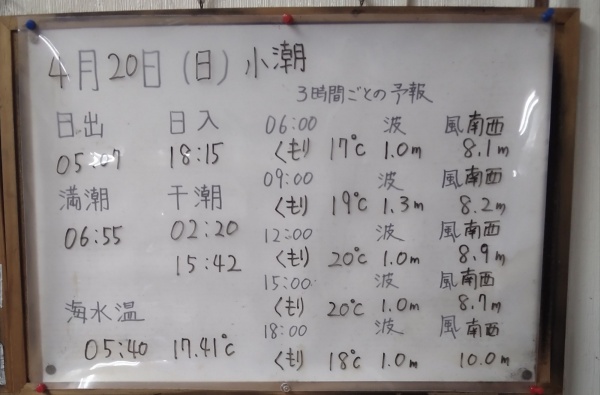 4月20日(日)小潮
3時間ごとの予報
日出 日入
05:07 18:15
満潮 干潮
06:55 02:20
15:42
海水温
05:40 17.41℃
06:00 波 風南西
くもり 17℃ 1.0m 8.1m
09:00 波 風南西
くもり 19℃ 1.3m 8.2m
12:00 波 風南西
くもり 20℃ 1.0m 8.9m
15:00 波 風南西
くもり 20℃ 1.0m 8.7m
18:00 波 風南西
くもり 18℃ 1.0m 10.0m